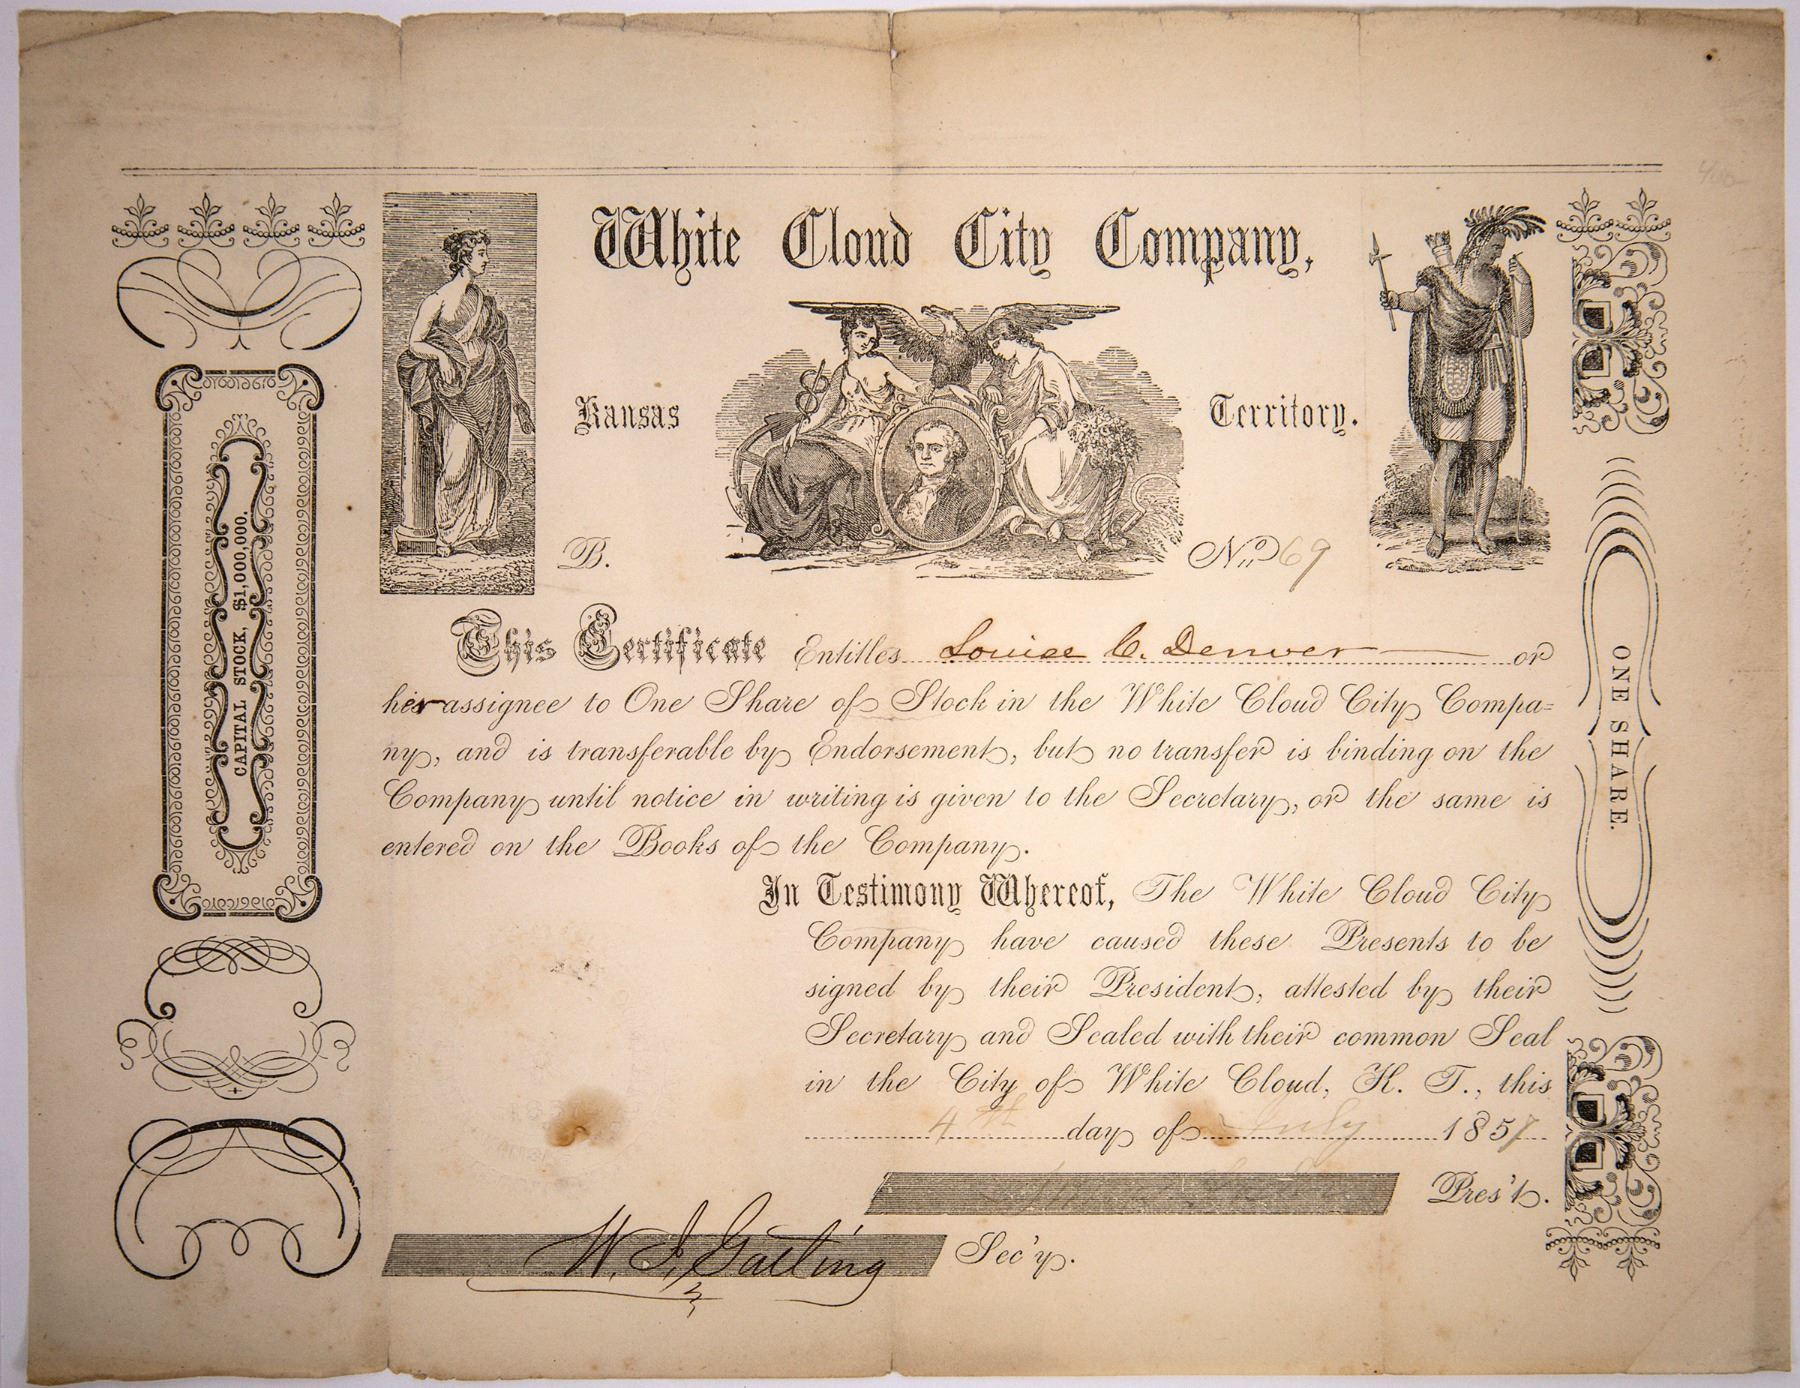 White Cloud City Company,
Kansas Territory.
B. No 69
CAPITAL STOCK, $1,000,000.
ONE SHARE.
This Certificate Entitles Louise C. Denver or
her assignee to One Share of Stock in the White Cloud City Compa=
ny, and is transferable by Endorsement, but no transfer is binding on the
Company until notice in writing is given to the Secretary, or the same is
entered on the Books of the Company.
In Testimony Whereof, The White Cloud City
Company have caused these Presents to be
signed by their President, attested by their
Secretary and Sealed with their common Seal
in the City of White Cloud, K. T., this
4th day of July 1857
Pres't.
W. J. Gatling Sec'y.